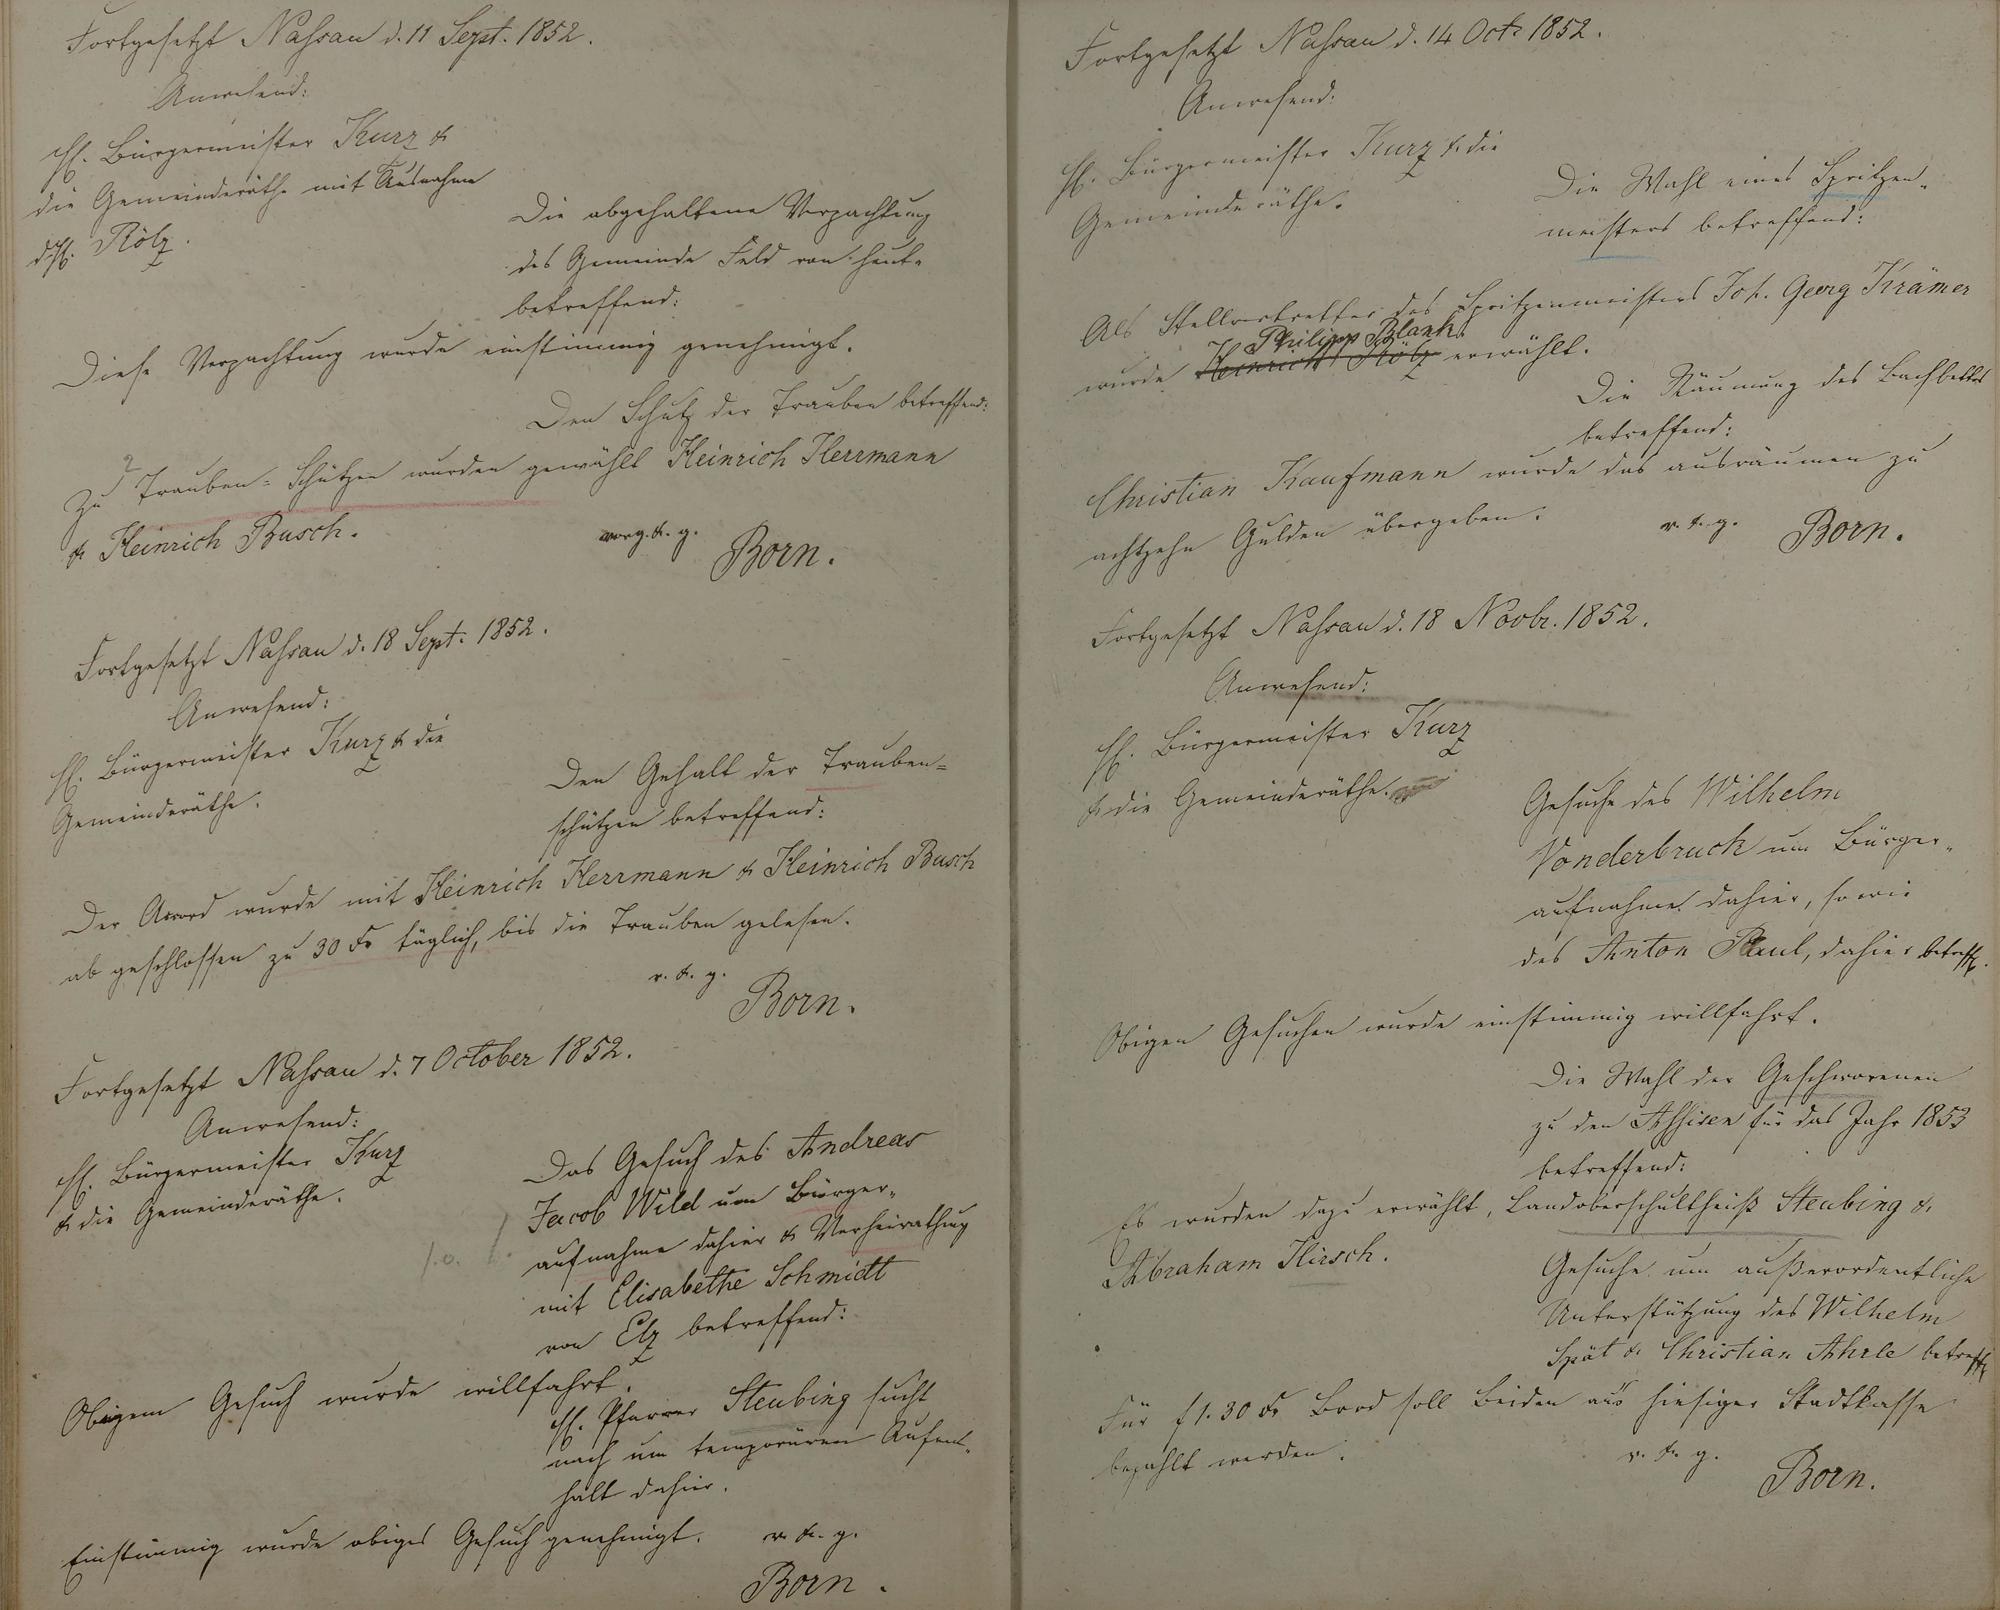 Fortgesetzt Nassau d. 11 Sept. 1852.
Anwesend:
H. Bürgermeister Kurz &
die Gemeinderäthe mit Ausnahme
d. H. Rölz.
Die abgehaltene Verpachtung
des Gemeinde Feld von heute
betreffend:
Diese Verpachtung wurde einstimmig genehmigt.
Den Schutz der Trauben betreffend:
Zu Trauben-Schützen wurden gewählt Heinrich Herrmann
& Heinrich Busch.
vorg. & g.
Born.
Fortgesetzt Nassau d. 18 Sept. 1852.
Anwesend:
H. Bürgermeister Kurz & die
Gemeinderäthe.
Den Gehalt der Trauben-
schützen betreffend:
Der Accord wurde mit Heinrich Herrmann & Heinrich Busch
abgeschlossen zu 30 Xr täglich, bis die Trauben gelesen.
v. & g.
Born.
Fortgesetzt Nassau d. 7 October 1852.
Anwesend:
H. Bürgermeister Kurz
& die Gemeinderäthe.
Das Gesuch des Andreas
Jacob Wild um Bürger-
aufnahme dahier & Verheirathung
mit Elisabethe Schmidt
von Elz betreffend:
Obigem Gesuch wurde willfahrt.
H. Pfarrer Steubing sucht
nach um temporären Aufent-
halt dahier.
Einstimmig wurde obiges Gesuch genehmigt.
v. & g.
Born.
Fortgesetzt Nassau d. 14 Oct. 1852.
Anwesend:
H. Bürgermeister Kurz & die
Gemeinderäthe.
Die Wahl eines Spritzen-
meisters betreffend:
Als Stellvertretter des Spritzenmeisters Joh. Georg Krämer
Philipp Blank
wurde Heinrich Rölz erwählt.
Die Räumung des Bachbettes
betreffend:
Christian Kaufmann wurde das ausräumen zu
achtzehn Gulden übergeben.
v. & g.
Born.
Fortgesetzt Nassau d. 18 Novbr. 1852.
Anwesend:
H. Bürgermeister Kurz
& die Gemeinderäthe.
Gesuche des Wilhelm
Vonderbruck um Bürger-
aufnahme dahier, sowie
des Anton Paul, dahier betreff.
Obigen Gesuchen wurde einstimmig willfahrt.
Die Wahl der Geschworenen
zu den Assisen für das Jahr 1853
betreffend:
Es wurden dazu erwählt, Landoberschultheiß Steubing &
Abraham Hirsch.
Gesuche um außerordentliche
Unterstützung des Wilhelm
Spät & Christian Ahrle betreff.
Für f 1. 30 Xr Brod soll beiden aus hiesiger Stadtkasse
bezahlt werden.
v. & g.
Born.